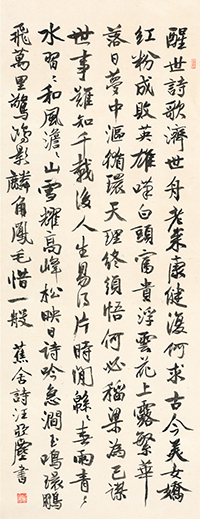 醒世詩歌濟世舟老來康健復何求古今美女嬌
紅粉成敗英雄嘆白頭富貴浮雲花上露繁華
落日夢中漚循環天理終須悟何必稻粱為己謀
世事難知千載後人生易得片時閒綿綿春雨青青
水習習和風澹澹山雪耀高峰松映日詩吟急澗玉鳴環鵬
飛萬里驚鴻影麟角鳳毛惜一般 蕉舍詩汪
書